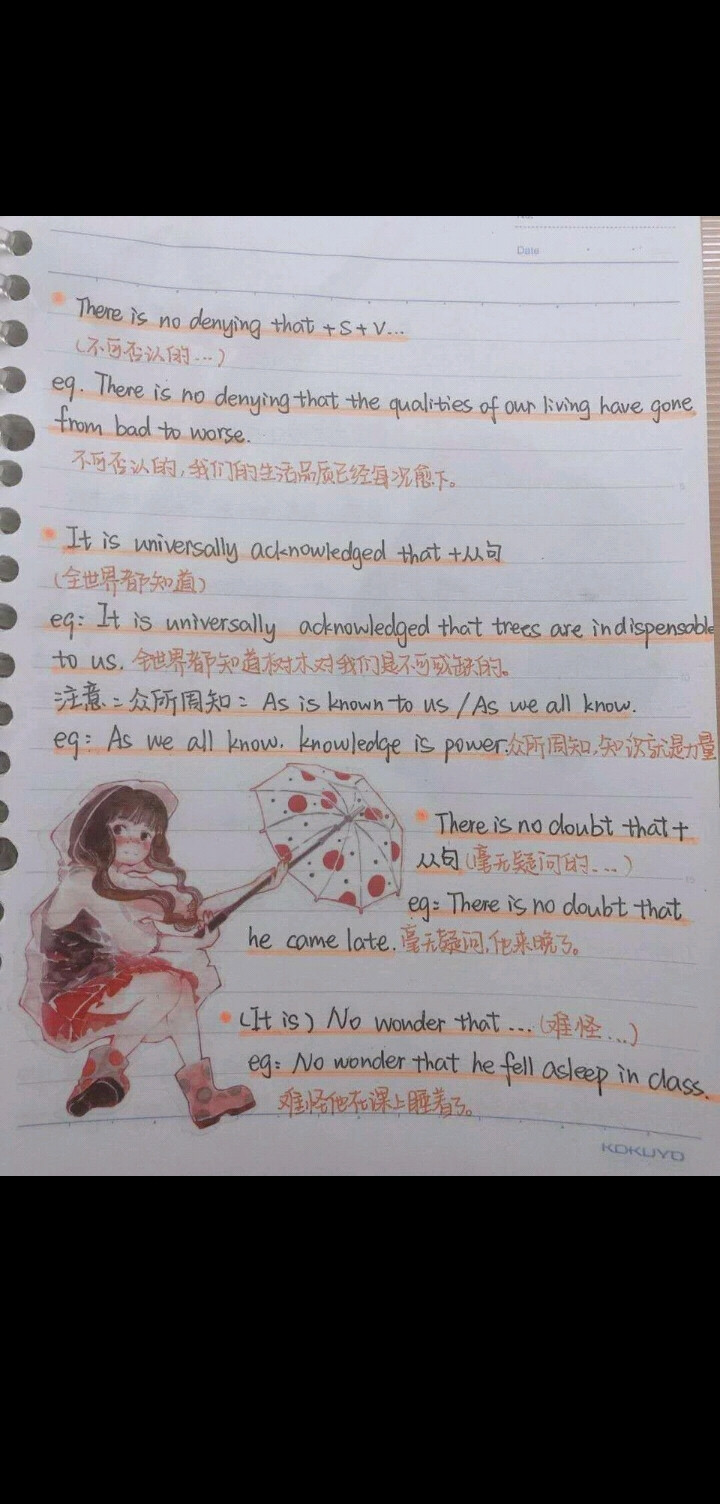 Date
There is no denying that + S + V...
(不可否认的...)
eg. There is no denying that the qualities of our living have gone
from bad to worse.
不可否认的,我们的生活品质已经每况愈下。
It is universally acknowledged that +从句
(全世界都知道)
eg: It is universally acknowledged that trees are indispensable
to us. 全世界都知道树木对我们是不可或缺的。
注意:众所周知= As is known to us / As we all know.
eg: As we all know. knowledge is power.众所周知,知识就是力量
There is no doubt that +
从句(毫无疑问的...)
eg: There is no doubt that
he came late.毫无疑问,他来晚了。
(It is) No wonder that ... (难怪...)
eg: No wonder that he fell asleep in class.
难怪他在课上睡着了。
KOKUYO